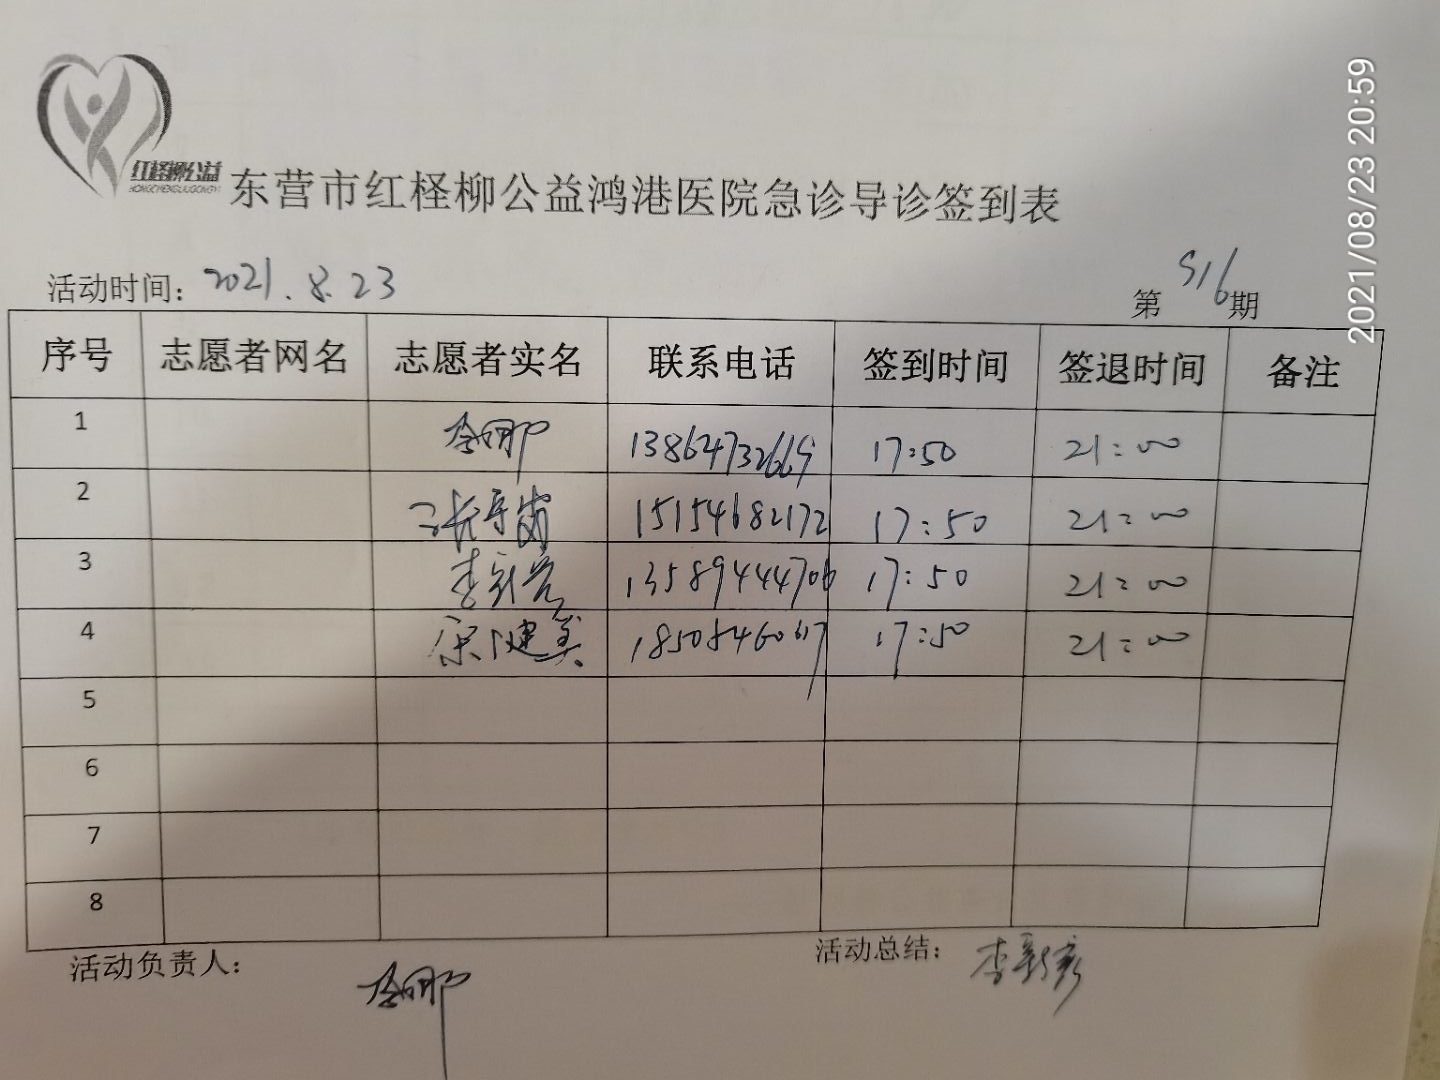 2021/08/23 20:59
红柽柳公益
东营市红柽柳公益鸿港医院急诊导诊签到表
活动时间: 2021.8.23 第 516 期
序号 志愿者网名 志愿者实名 联系电话 签到时间 签退时间 备注
1 17:50 21:00
2 15154682172 17:50 21:00
3 13589444706 17:50 21:00
4 宋健美 17:50 21:00
5
6
7
8
活动负责人: 活动总结: